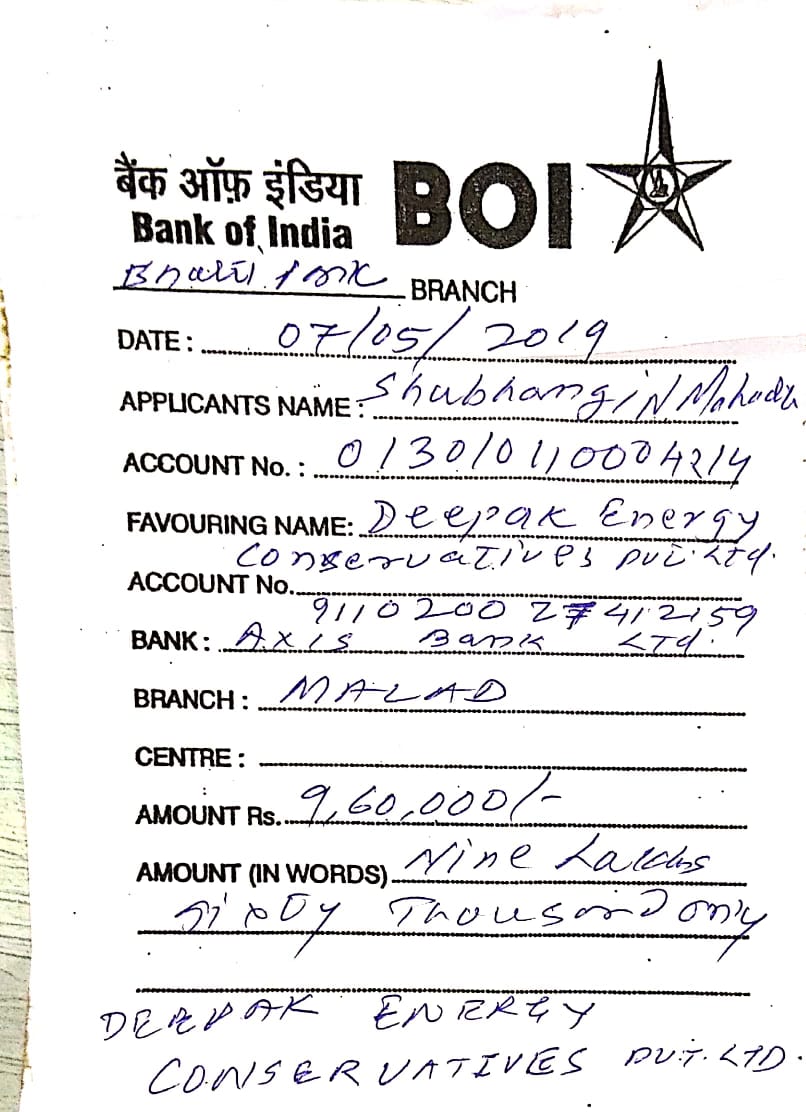 बैंक ऑफ़ इंडिया
Bank of India BOI
BRANCH
DATE : 07/05/2019
APPLICANTS NAME : Shubhangi N Mahadu
ACCOUNT No. : 013010110004214
FAVOURING NAME: Deepak Energy
Conservatives PVT. LTd.
ACCOUNT No.
911020027412159
BANK : Axis Bank LTd.
BRANCH : MALAD
CENTRE :
AMOUNT Rs. 9,60,000/-
AMOUNT (IN WORDS) Nine Lakhs
Sixty Thousand only
DEEPAK ENERGY
CONSERVATIVES PVT. LTD.